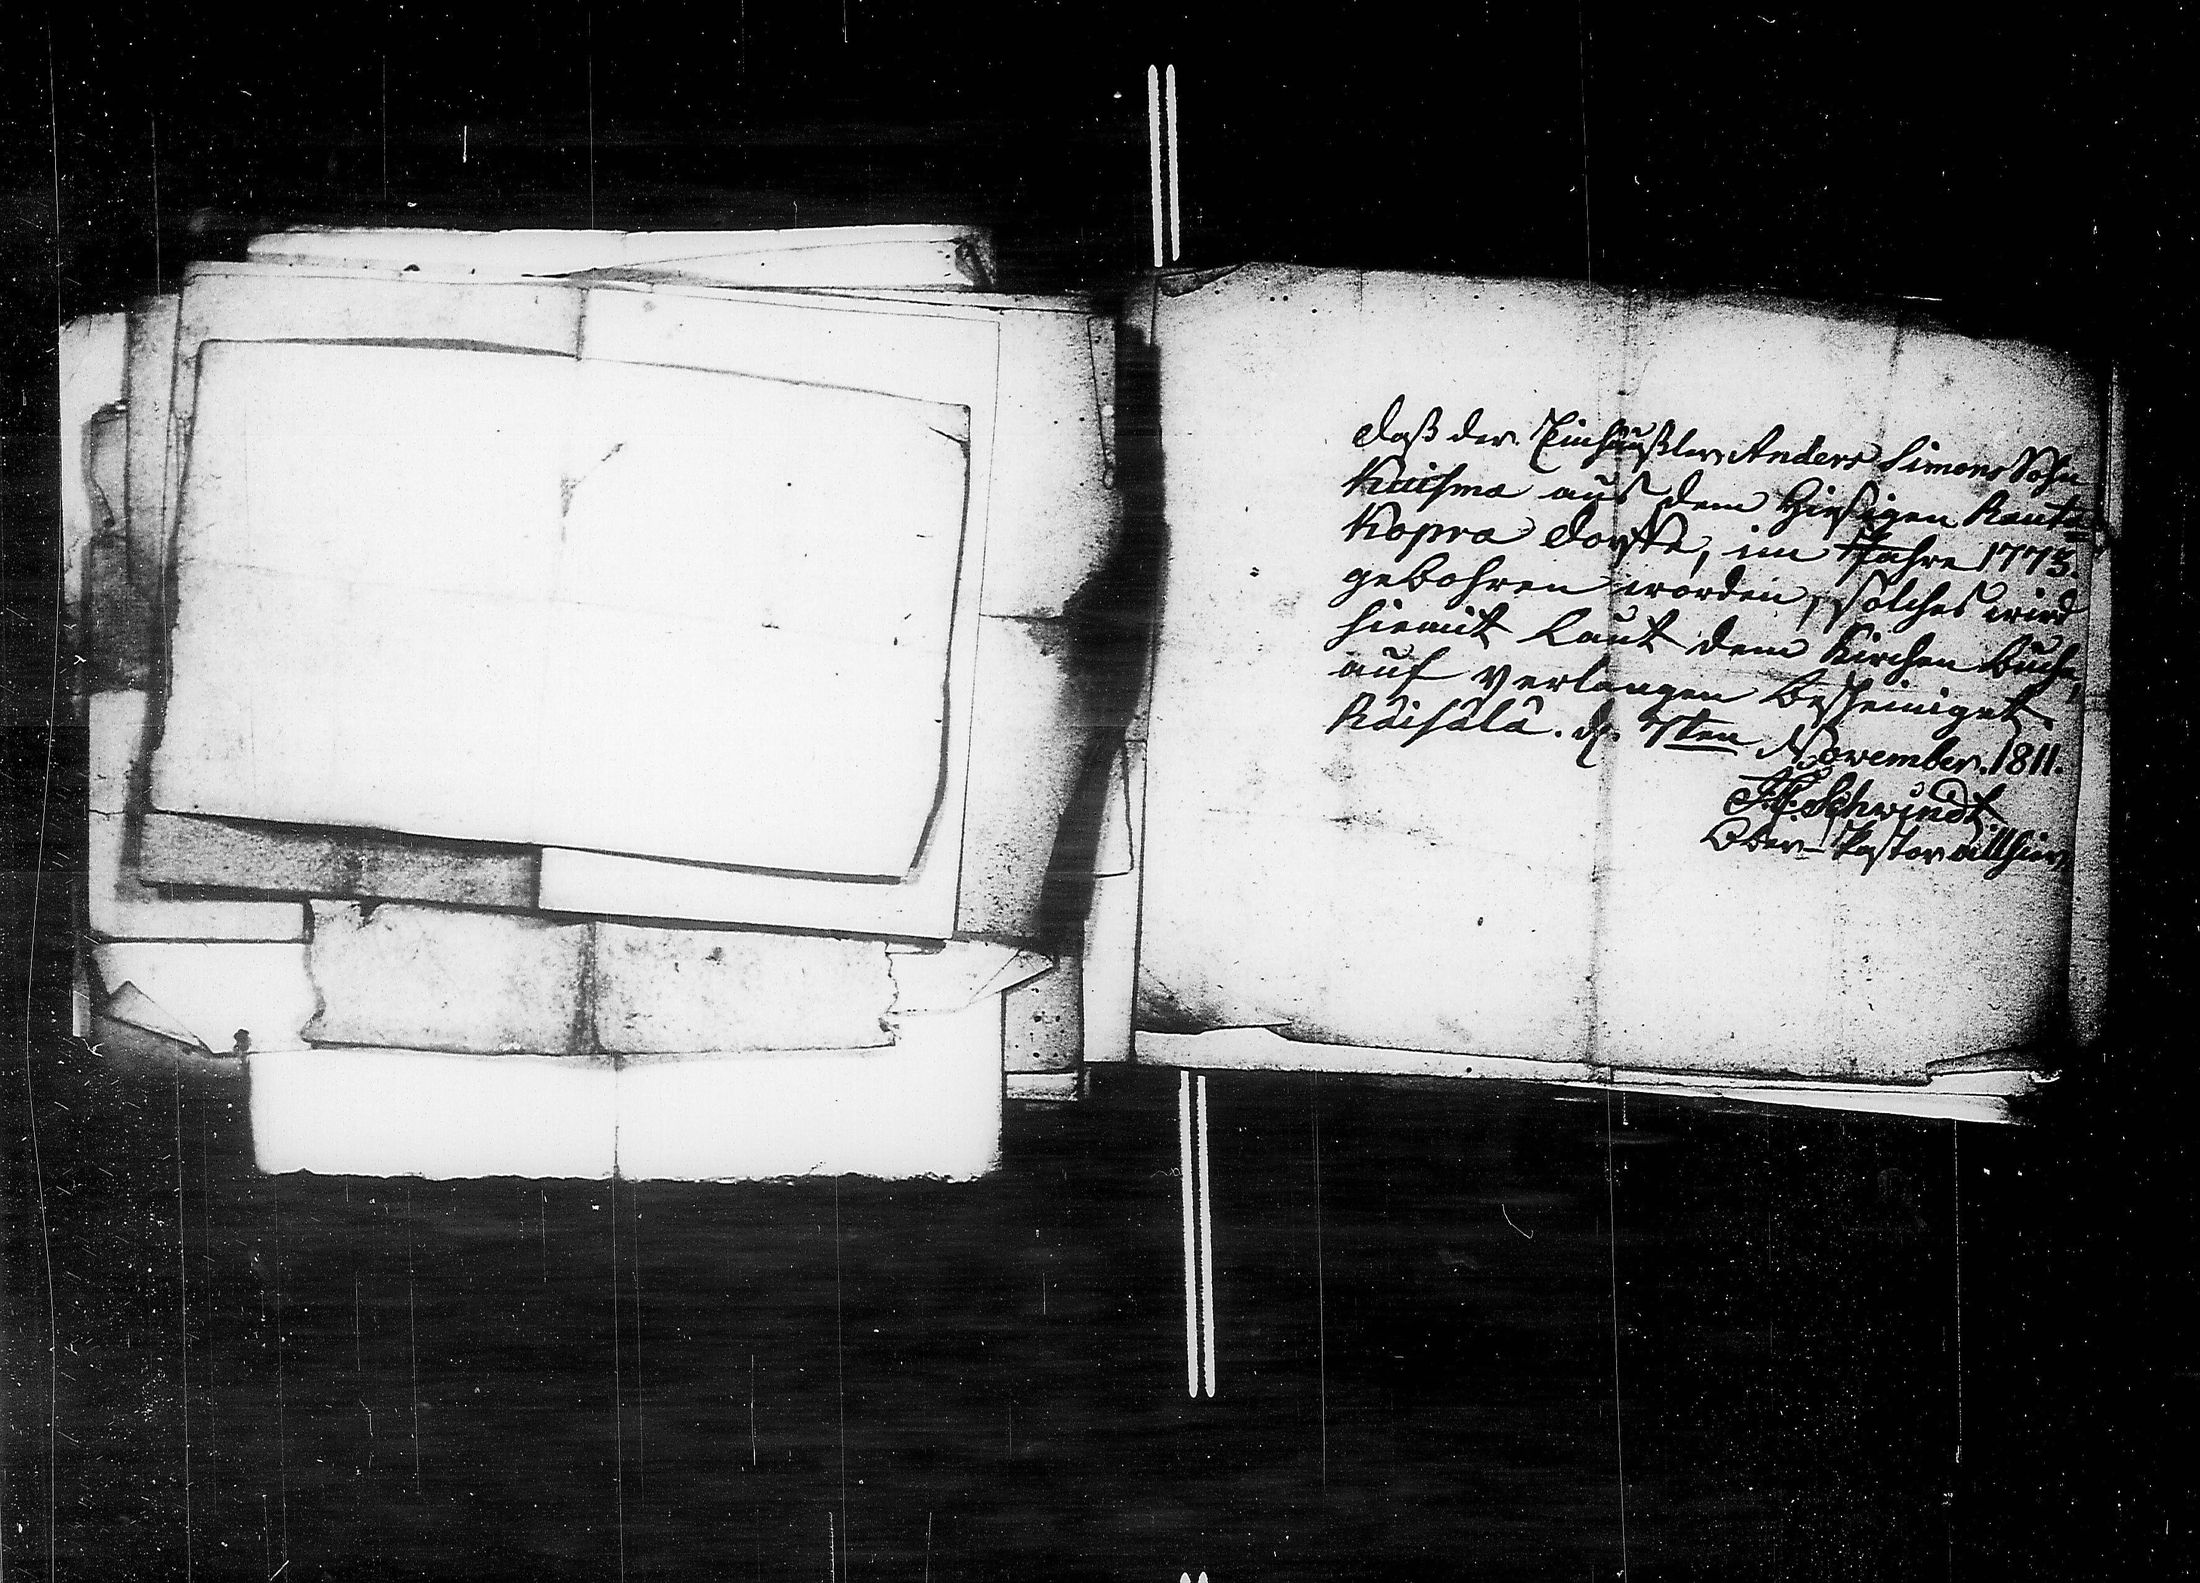 Daß der Einhäußler Anders Simons Sohn
Kaisma aus dem hiesigen Rauta=
Kopra Dorffe, im Jahre 1773.
gebohren worden, solches wird
hiemit Laut dem Kirchen Buche,
auf Verlangen bescheiniget.
Räisälä. d. 7ten November. 1811.
Schwindt
Ober-Pastor allhier